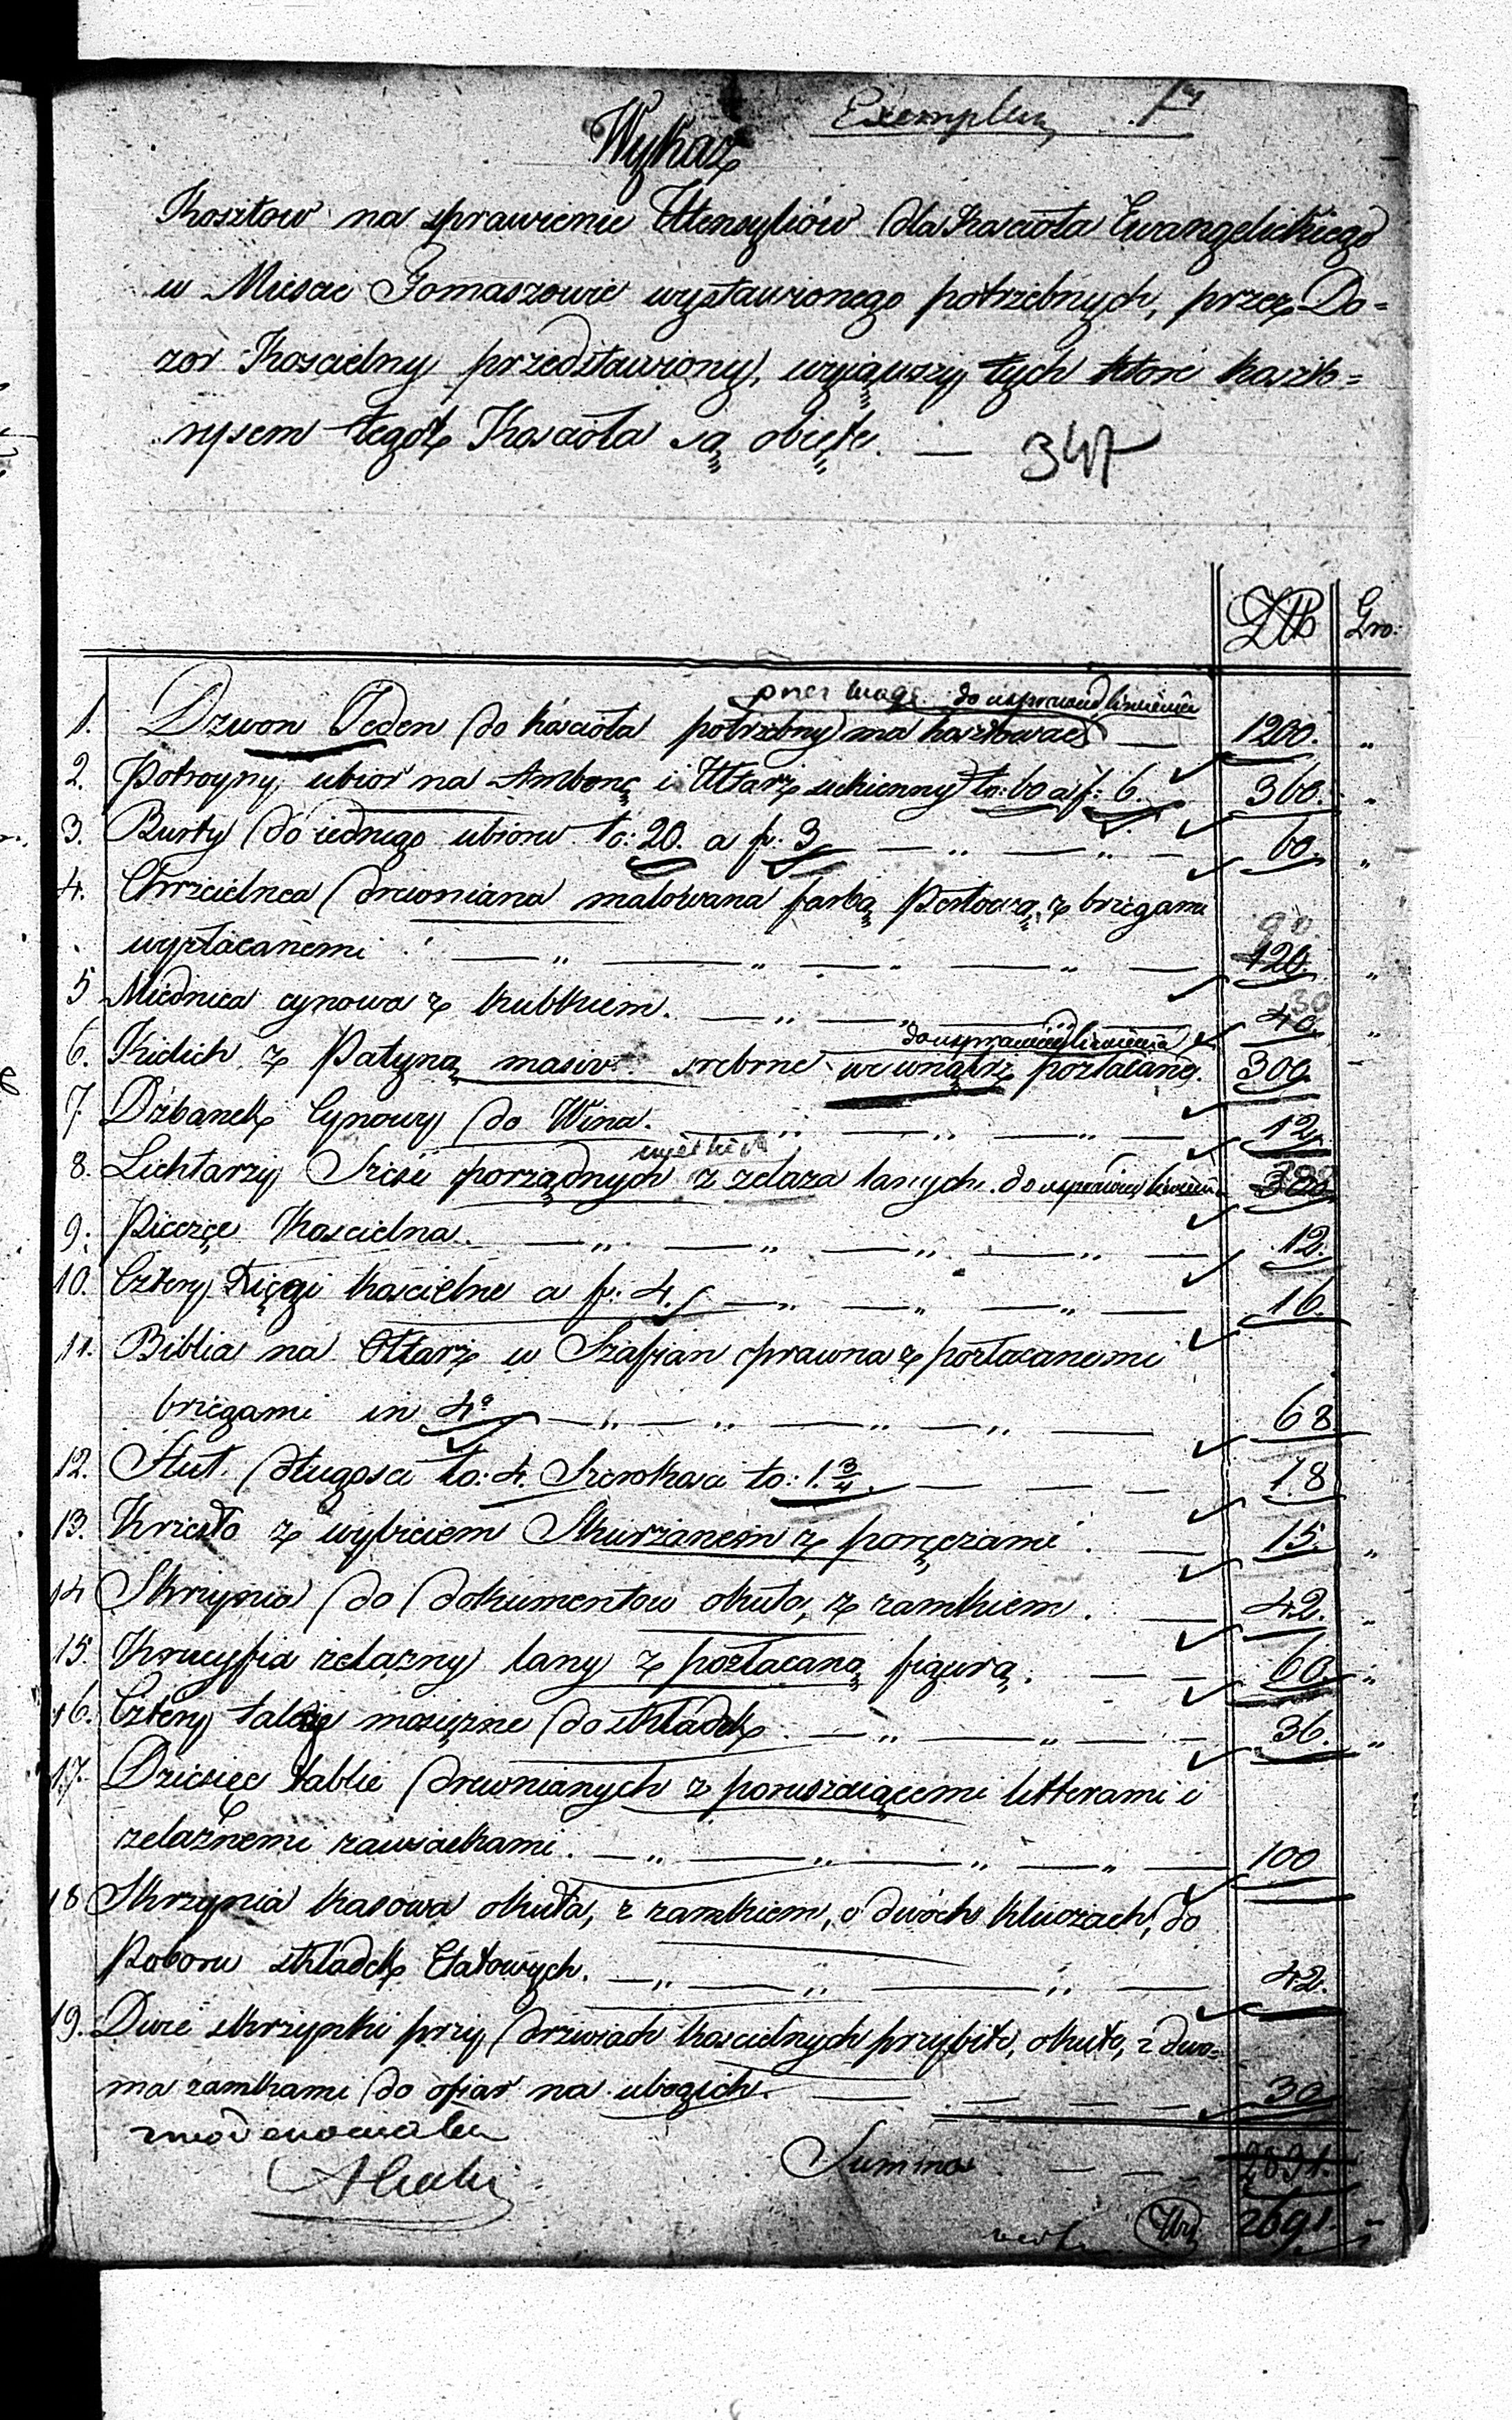 Exemplarz
Wykaz
Kosztow na sprawienie Utensyliów dla Kosciola Ewangelickiego
w Miescie Tomaszowie wystawionego potrzebnych, przez Do=
zor Koscielny przedstawiony, wyiąwszy tych które koszto=
rysem tegoż Kosciola są obięte. —
347
ZłP Gro:
przez wagę do usprawiedliwienia
1. Dzwon Jeden do kościoła potrzebny ma kosztować — 1200. "
2. Potroyny ubior na Ambonę i Ołtarz sukienny ło: 60 a f: 6. 360. "
3. Burty do iednego ubioru ło: 20. a f: 3 — " — " — 60. "
4. Chrzcielnca drewniana malowana farbą Perłową, z brzegami
wyzłacanemi — " — " — " — " — 90. 120. "
5 Miednica cynowa z kubkiem. — " — " — 30 40. "
do usprawiedliwienia
6. Kielich z Patyną masiv: srebrne wewnątrz pozłacane. 300. –
7 Dzbanek Cynowy do Wina. — " — " — " — 12.
8. Lichtarzy Sześć porządnych z zelaza lanych. do usprawiedliwienia 300
9. Pieczęc Koscielna. — " — " — " — " — 12.
10. Cztery Księgi koscielne a f: 4. — " — " — " — 16.
11. Biblia na Ołtarz w Szafian oprawna z pozłacanemi
brzegami in 4º — " — " — " — " — 68
12. Stuł długosci ło: 4. Szerokosci ło: 1.¾. — — — 18
13. Krzesło z wybiciem Skurzanem z poręczami. — 15. "
14 Skrzynia do dokumentow okuta, z zamkiem. — 42. "
15. Krucyfix zelazny lany z pozłacaną figurą. — — 60. "
16. Cztery talerze mosiężne do składek — " — " — — 36. "
17. Dziesięc tablic drewnianych z poruszaiącemi litterami i
zelaznemi zawiaskami. — " — " — " — " — 100
18 Skrzynia kasowa okuta, z zamkiem, o dwóch kluczach, do
Poboru składek Etatowych. — " — " — " — 42.
19. Dwie skrzynki przy drzwiach koscielnych przybite, okute, z dwo=
ma zamkami do ofiar na ubogich. — — — — 30.
Summa — — — 2691. "